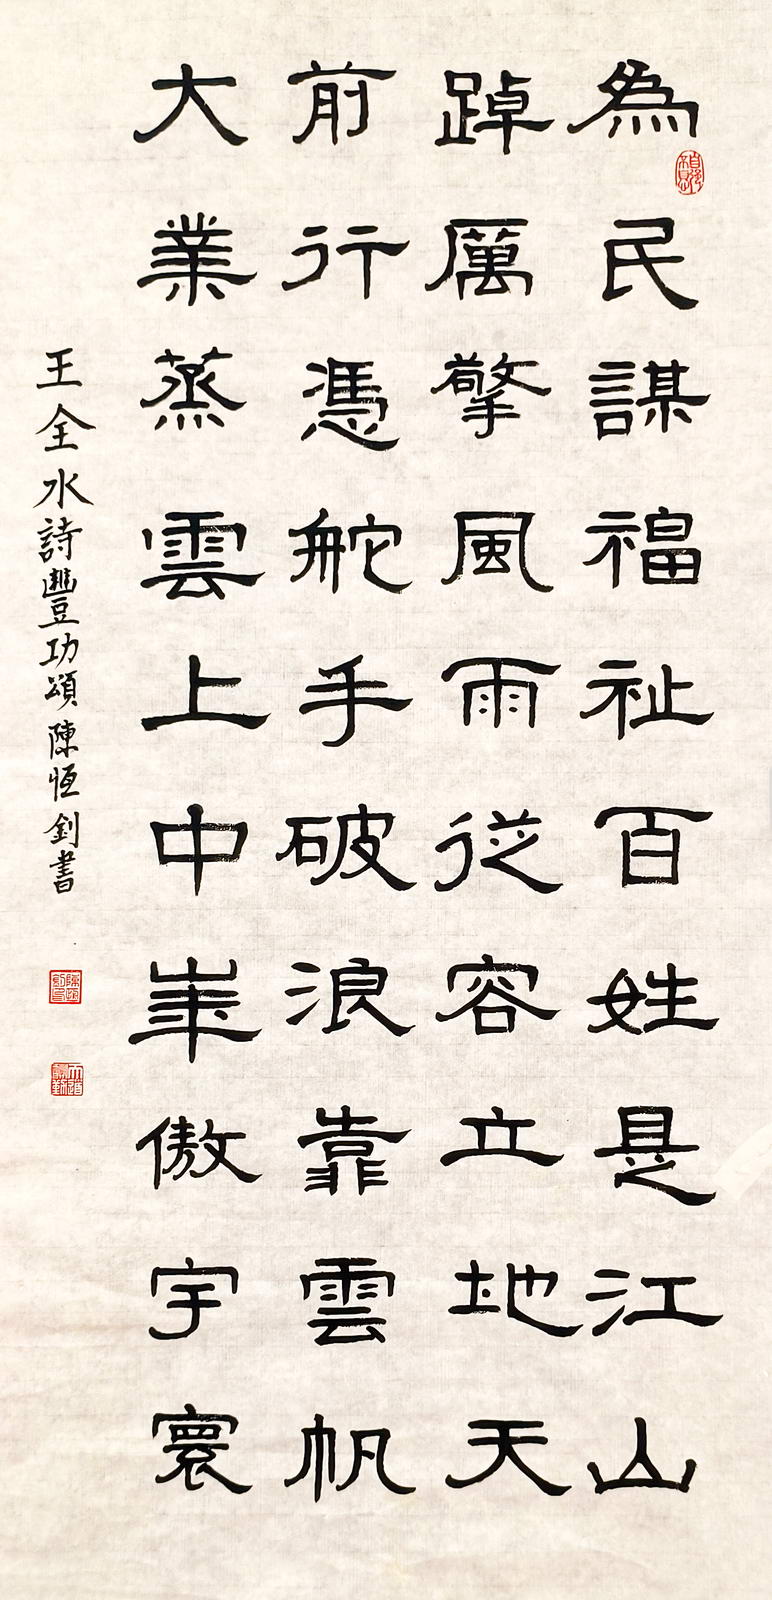 為民謀福祉百姓是江山
踔厲擎風雨從容立地天
前行憑舵手破浪靠雲帆
大業蒸雲上中華傲宇寰
王全水詩豐功頌陳恆釗書